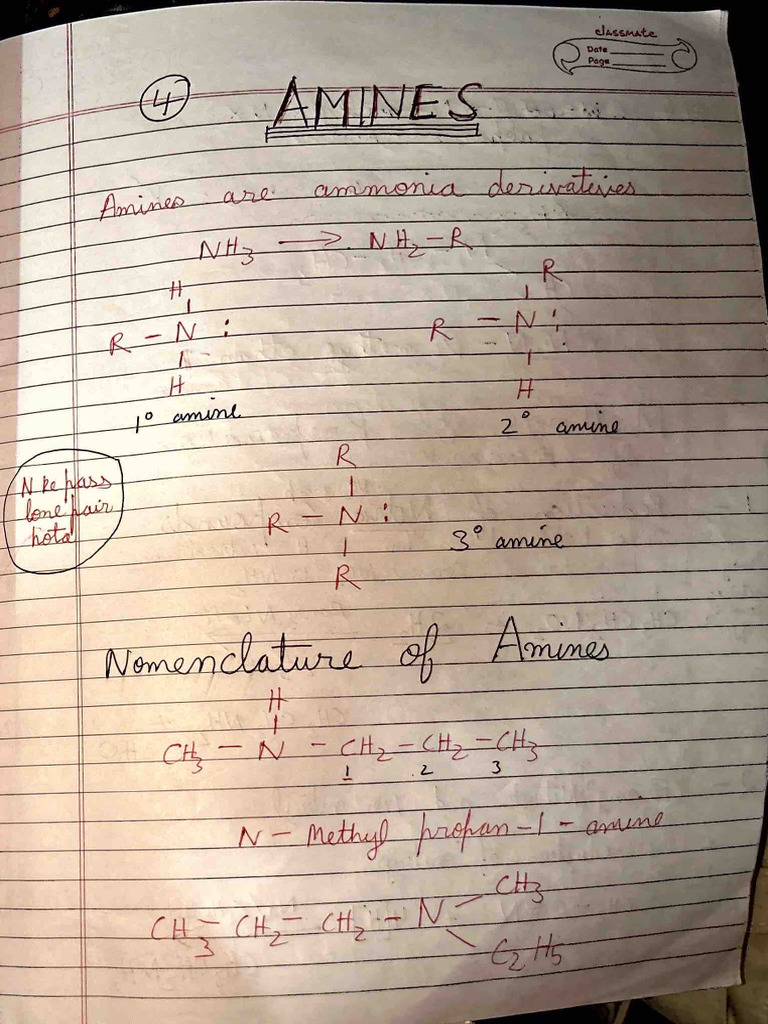 classmate
Date
Page
4
AMINES
Amines are ammonia derivatives
NH3 → NH2-R
H R
R - N : R - N :
H H
1° amine 2° amine
R
N ke pass
lone pair
hota
R - N :
3° amine
R
Nomenclature of Amines
H
CH3 - N - CH2 - CH2 - CH3
1 2 3
N - Methyl propan-1-amine
CH3 - CH2 - CH2 - N
CH3
C2H5